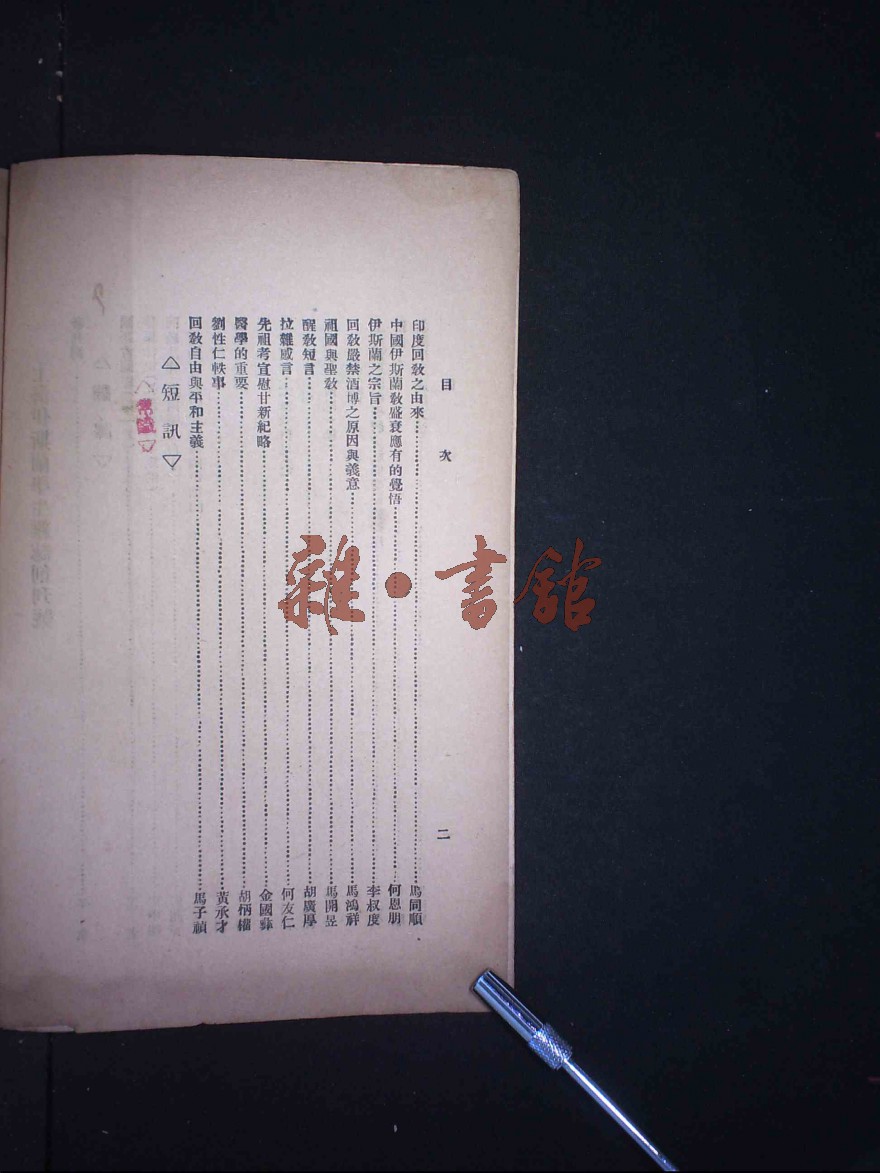 目次
二
印度回教之由來……馬同順
中國伊斯蘭教盛衰應有的覺悟……何恩朋
伊斯蘭之宗旨……李叔度
回教嚴禁酒博之原因與義意……馬鴻祥
祖國與聖教……馬開昱
醒教短言……胡廣學
拉雜感言……何友仁
先祖考宣慰甘新紀略……金國彝
醫學的重要……胡炳權
劉性仁軼事……黃承才
回教自由與平和主義……馬子禎
△短訊▽
雜·書館